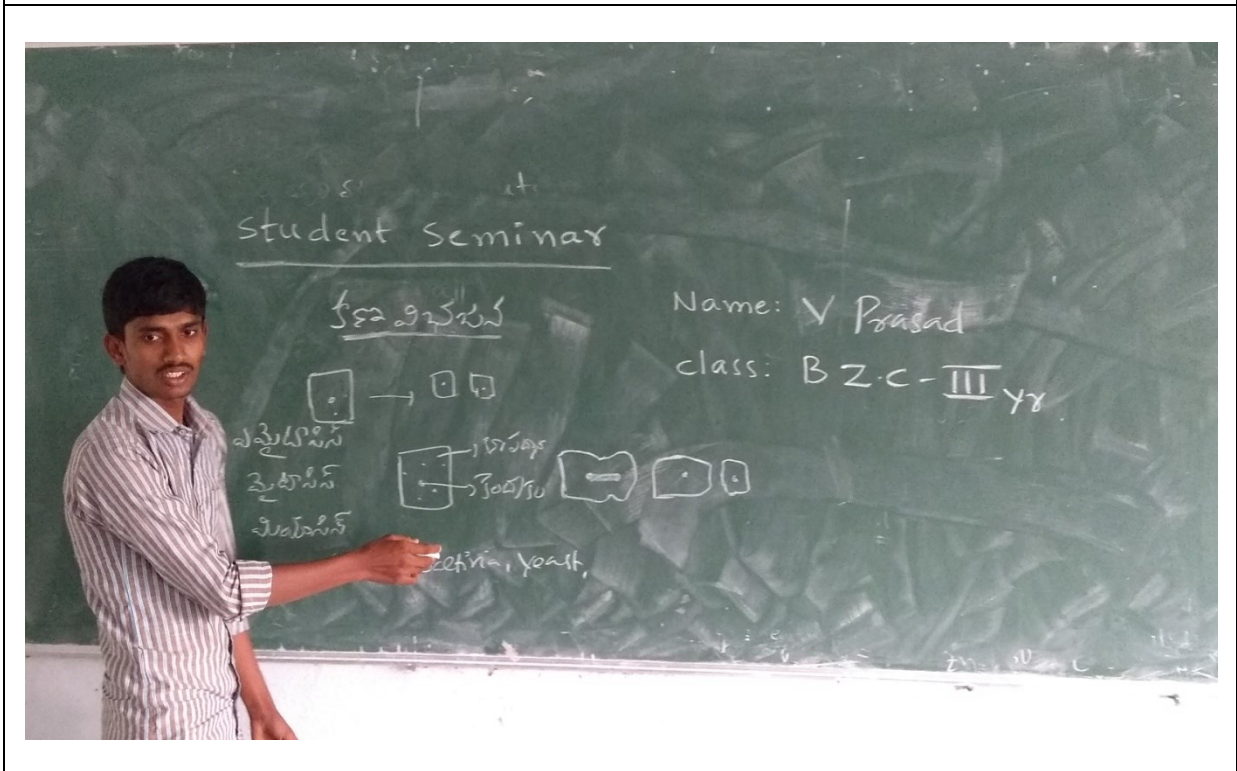 Student Seminar
కణ విభజన
Name: V Prasad
class: B Z.C - III yr.
ఎమైటాసిస్
మైటాసిస్
మియాసిస్
కేంద్రకం
yeast,